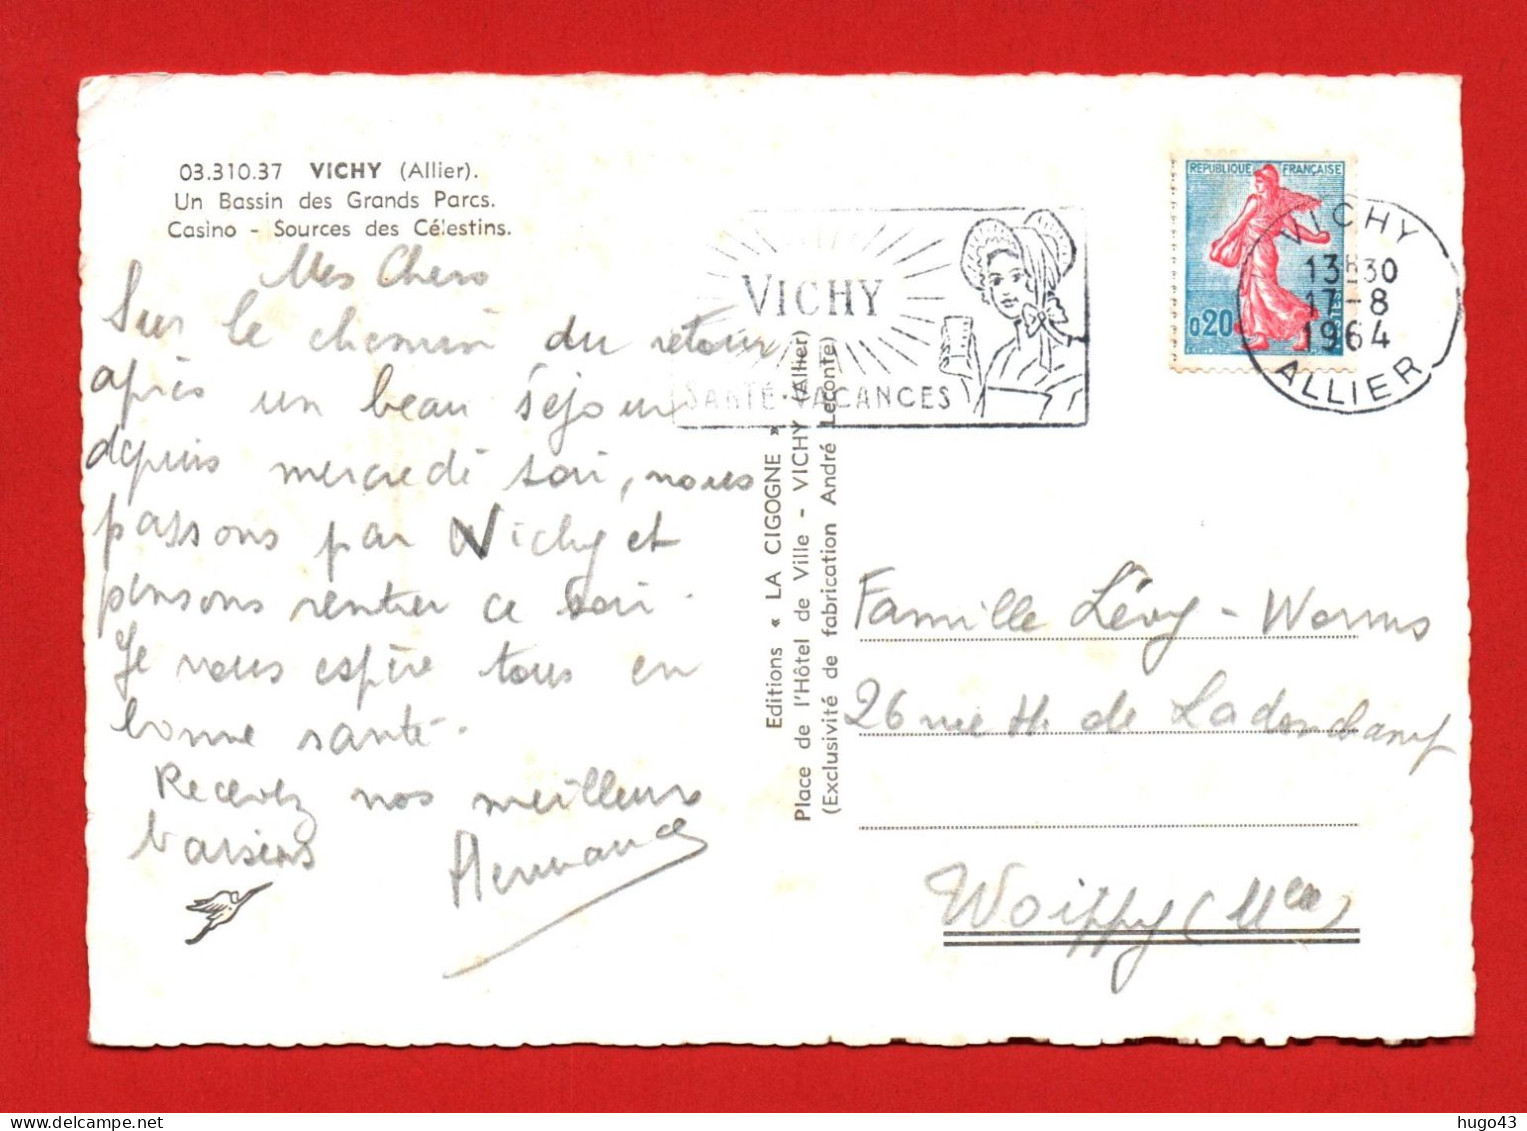 03.310.37 VICHY (Allier).
Un Bassin des Grands Parcs.
Casino - Sources des Célestins.
Mes Chers
Sur le chemin du retour
après un beau séjour
depuis mercredi soir, nous
passons par Vichy et
pensons rentrer ce soir.
Je vous espère tous en
bonne santé.
Recevez nos meilleurs
baisers
Hermance
Editions « LA CIGOGNE »
Place de l'Hôtel de Ville - VICHY (Allier)
(Exclusivité de fabrication André Leconte)
VICHY
SANTÉ·VACANCES
REPUBLIQUE FRANÇAISE
0,20
POSTES
VICHY
13H30
17-8
1964
ALLIER
Famille Lévy - Worms
26 rue de Ladonchamp
Woippy (Mlle)
hugo43